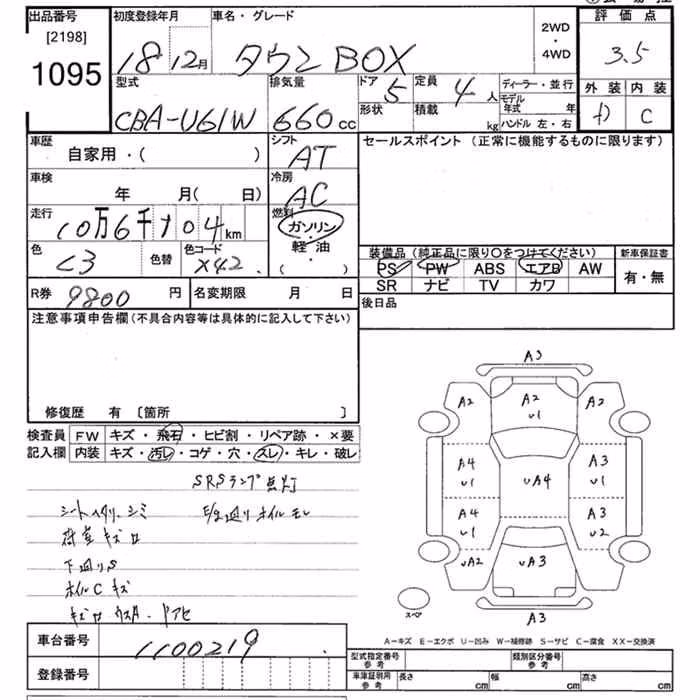 出品番号 初度登録年月 車名・グレード 2WD ・ 4WD 評価点
[2198]
1095
18 12月 タウンBOX 3.5
型式 排気量 ドア 定員 ディーラー・並行 外装 内装
CBA-U61W 660cc 5 4人 モデル年式 年 C
形状 積載 kg ハンドル 左・右
車歴 シフト セールスポイント (正常に機能するものに限ります)
自家用・( ) AT
車検 冷房
年 月( 日) AC
走行 燃料
10万6千104km ガソリン ・ 軽油 ・ ( )
色 色替 色コード 装備品 (純正品に限り○をつけてください) 新車保証書
X42 PS PW ABS エアB AW 有・無
SR ナビ TV カワ
R券 9800円 名変期限 月 日 後日品
注意事項申告欄(不具合内容等は具体的に記入して下さい)
修復歴 有 [箇所 ]
検査員 FW キズ・飛石・ヒビ割・リペア跡・×要
記入欄 内装 キズ・汚レ・コゲ・穴・スレ・キレ・破レ
SRSランプ点灯
シートヘタリ、シミ E/g廻りオイルモレ
荷室キズ
下廻りS
ホイルCキズ
A3
A2 A2 U1 A2
A4 U1 UA4 A3 U1
A4 U1 A3 U2
UA2 UA3 A2
スペア A3
A－キズ E－エクボ U－凹み W－補修跡 S－サビ C－腐食 XX－交換済
車台番号 1100219
登録番号
型式指定番号 参考 類別区分番号 参考
車庫証明用 参考 長さ cm 幅 cm 高さ cm